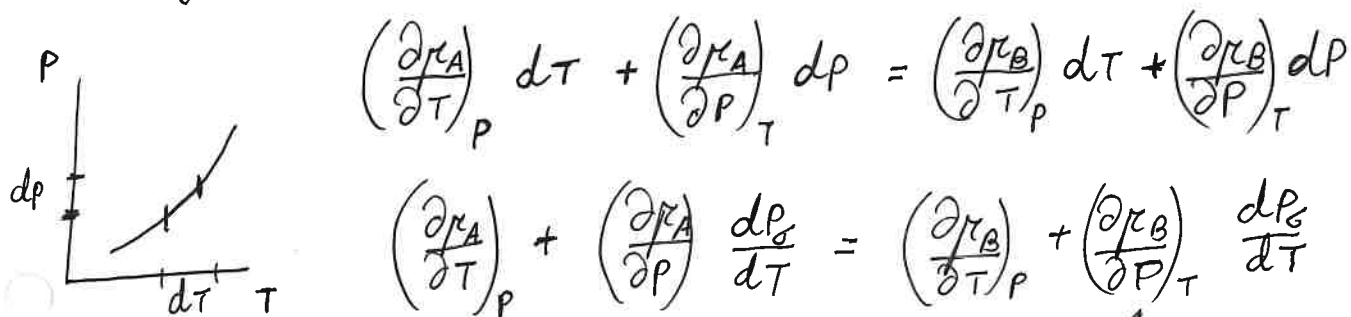 P
dP
dT T
(∂μ_A/∂T)_P dT + (∂μ_A/∂P)_T dP = (∂μ_B/∂T)_P dT + (∂μ_B/∂P)_T dP
(∂μ_A/∂T)_P + (∂μ_A/∂P) dP_σ/dT = (∂μ_B/∂T)_P + (∂μ_B/∂P)_T dP_σ/dT